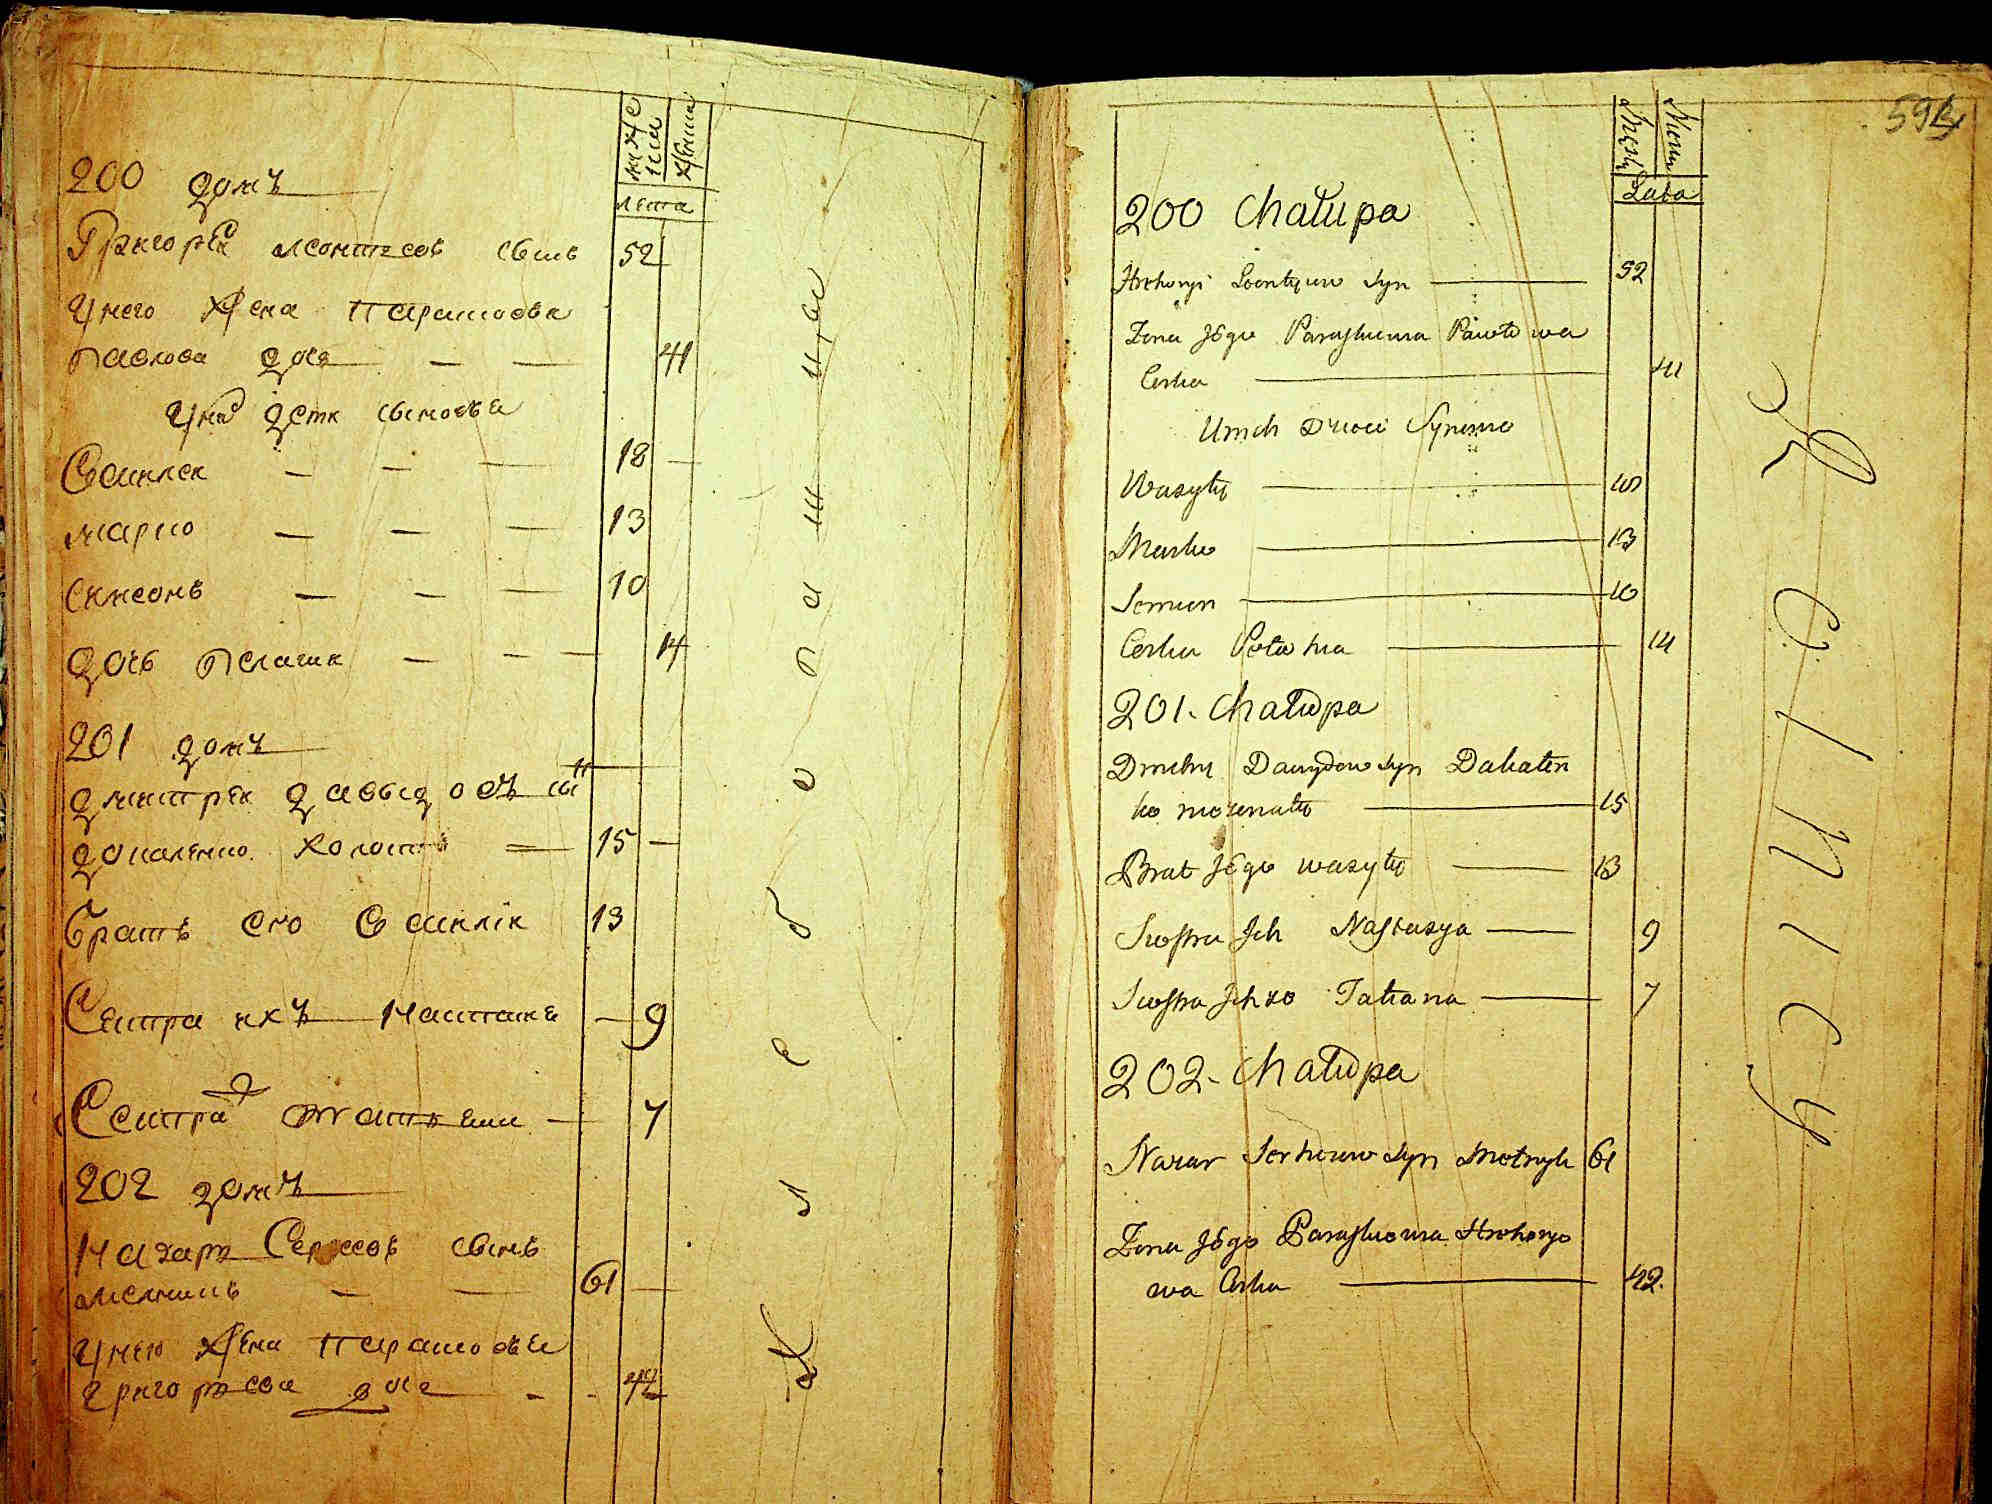 200 домъ
Григорей Леонтеевъ сынъ 52
У него жена Парасковя
Павлова дочь 41
У них дети сыновья
Василей 18
Марко 13
Симеонъ 10
дочь Пелагия 14
201 домъ
Дмитрей Давыдовъ сынъ
Докаленко холостъ 15
Братъ его Василiй 13
Сестра ихъ Настасия 9
Сестра Татиана 7
202 домъ
Назаръ Сергеевъ сынъ
61
У него жена Парасковья
Григорьева дочь 42
мужеска
женска
лета
200 Chałupa
Hrehoryi Leontyiew Syn 52
Żona Jego Paraskiewia Pawłowa
Corka 41
Umich Dzieci Synowie
Wasyly 18
Marko 13
Semion 10
Corka Pelahia 14
201. Chałupa
Dmitry Dawydow Syn Dakalen
ko nieżenaty 15
Brat Jego Wasyly 13
Siostra Ich Nastasya 9
Siostra Ich Tatiana 7
202. Chałupa
Nazar Serhiew Syn 61
Żona Jego Paraskiewia Hrehorjo
wa Corka 42
Męsk
Żensk
Lata